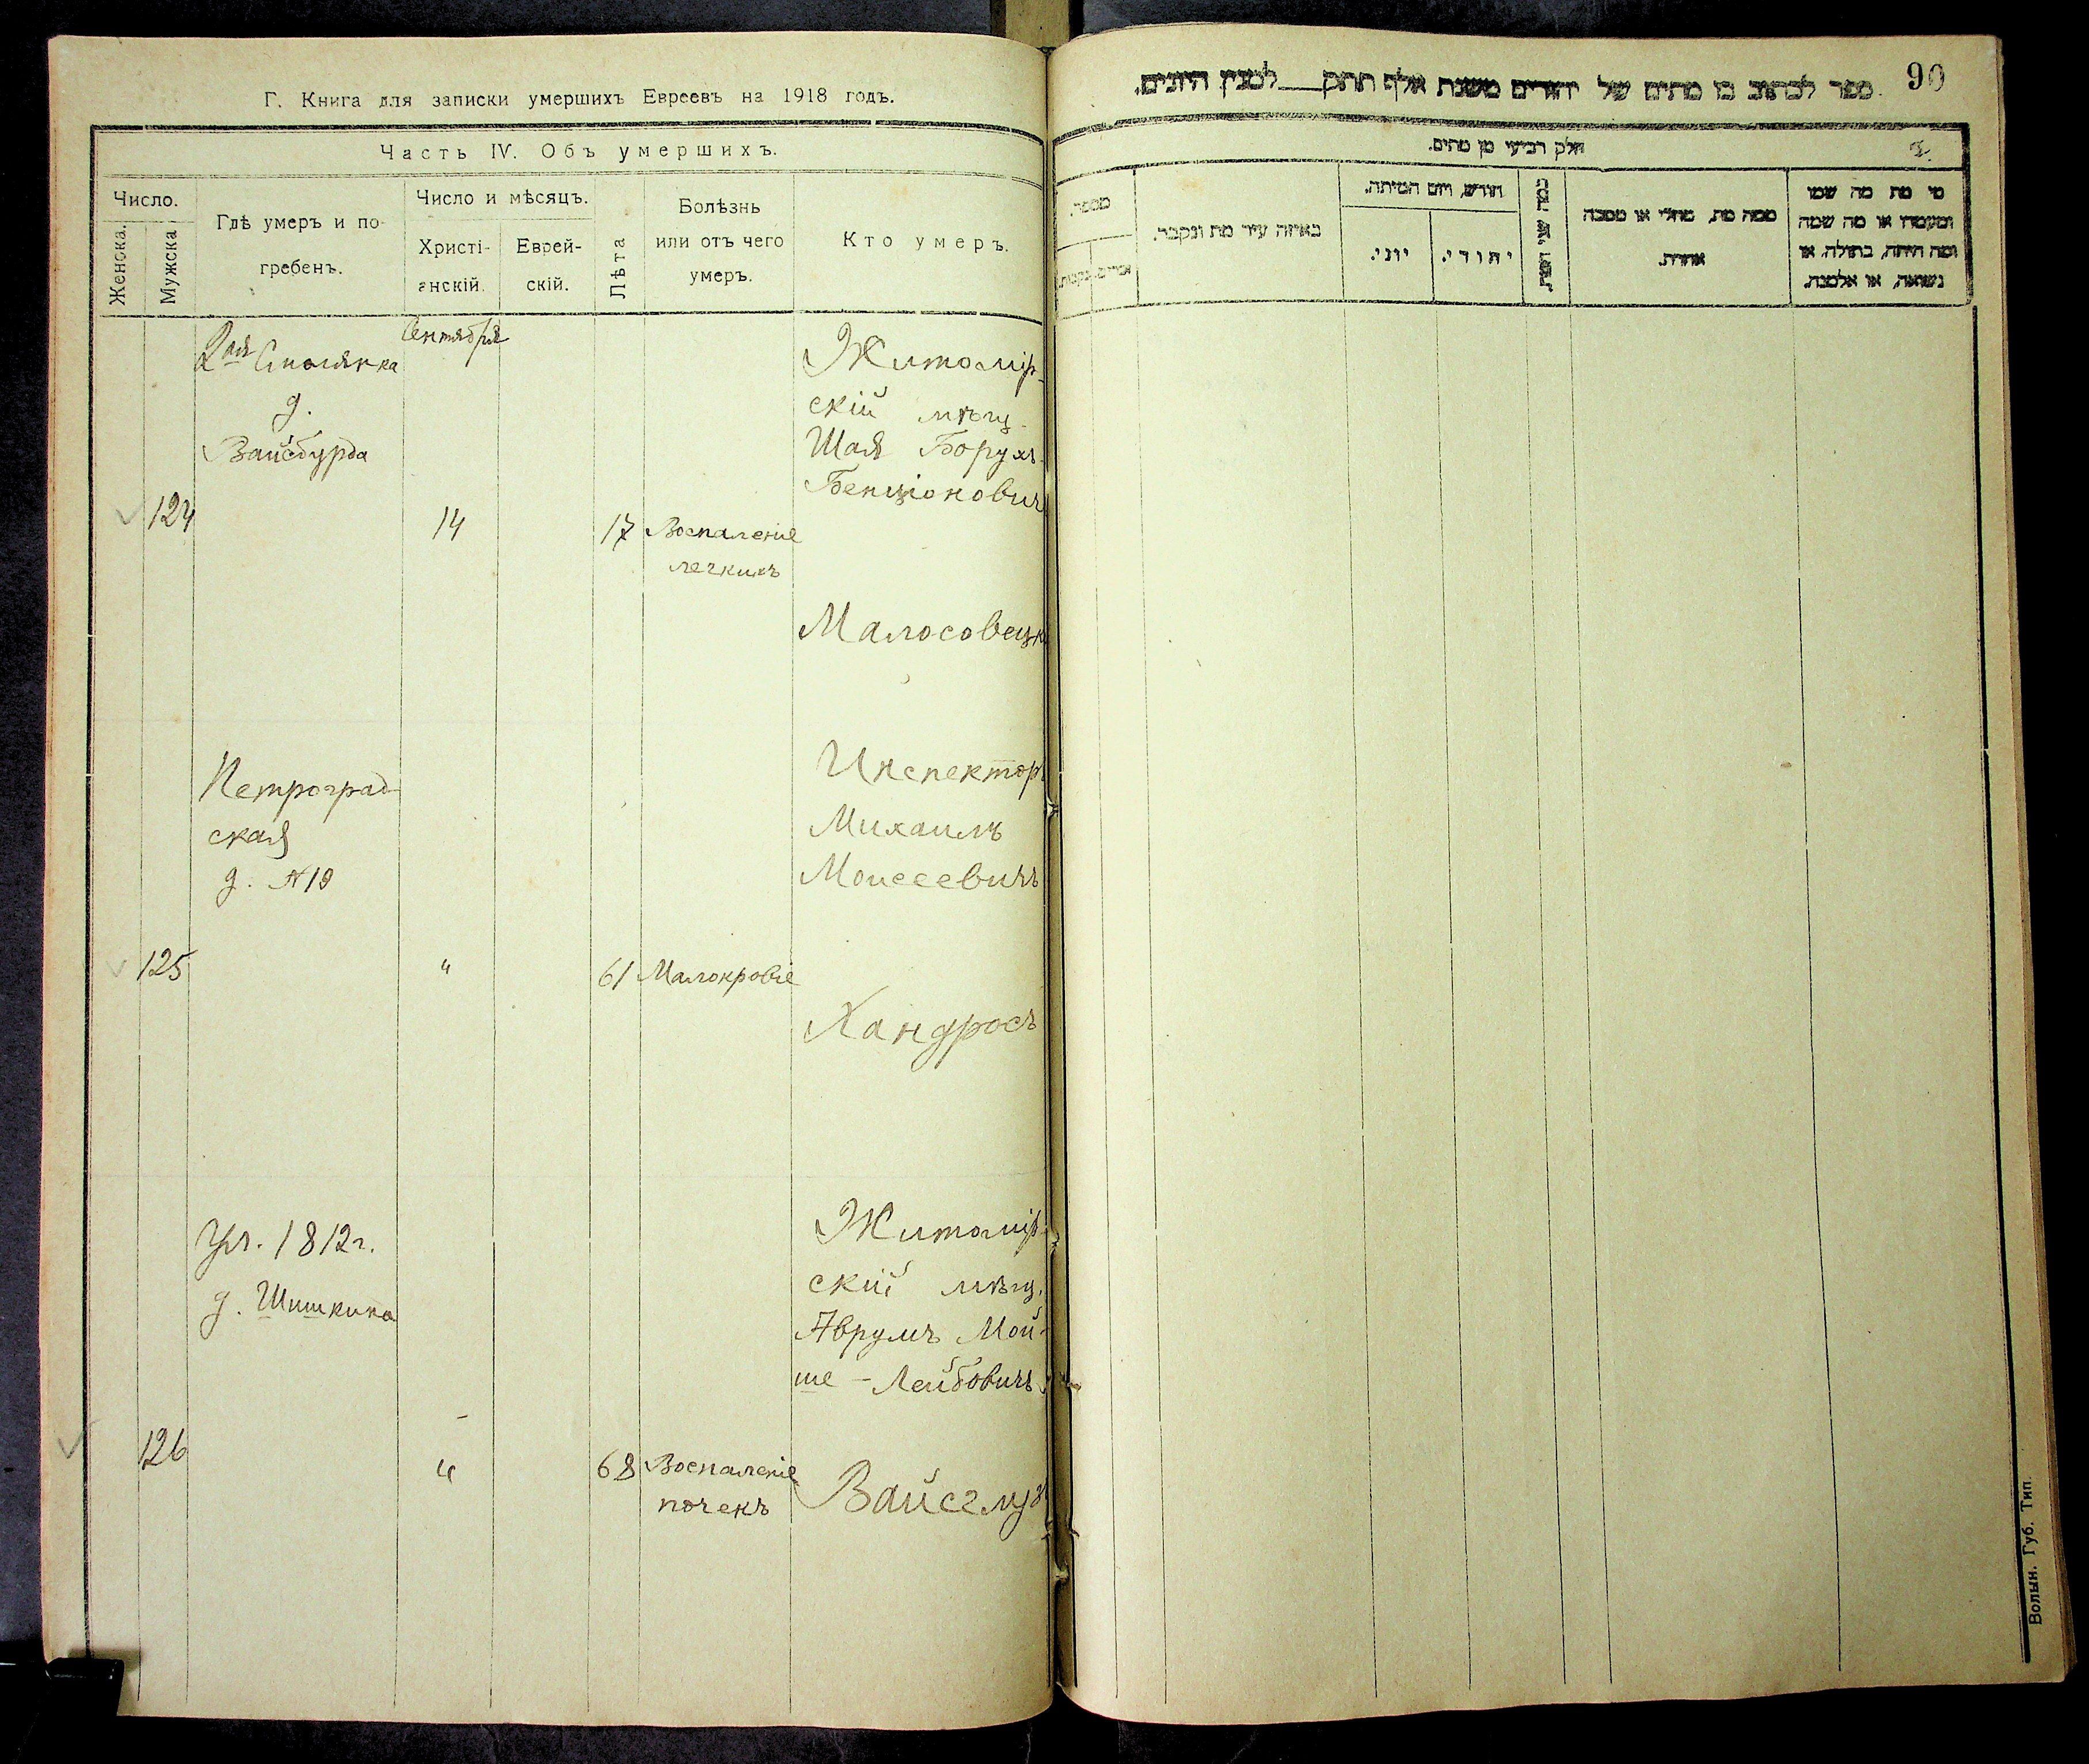 Г. Книга для записки умершихъ Евреевъ на 1918 годъ.
Часть IV. Объ умершихъ.
Число.
Женска.
Мужска
Гдѣ умеръ и по-
гребенъ.
Число и мѣсяцъ.
Христі-
анскій.
Еврей-
скій.
Лѣта
Болѣзнь
или отъ чего
умеръ.
Кто умеръ.
Сентября
2ая Смолянка
д.
Вайсбурда
124
14
17
Воспаленіе
легкихъ
Житомір-
скій мѣщ.
Шая Борухъ
Бенціонович
Малосовецк
Петроград-
ская
д. №19
125
"
61
Малокровіе
Инспектор
Михаилъ
Моисеевичъ
Хандросъ
Ул. 1812г.
д. Шишкина
126
"
68
Воспаленіе
почекъ
Житомір-
скій мѣщ.
Аврумъ Мой-
ше - Лейбовичъ
90
ספר לכתוב בו מתים של יהודים משנת אלף תתק__ למנין היונים.
חלק רביעי מן מתים.
מספר.
באיזה עיר מת ונקבר.
חודש, ויום המיתה.
יוני.
יהודי.
ממה מת, מחלי או מסבה
אחרת.
מי מת מה שמו
ומעמדו או מה שמה
ומה היתה, בתולה, או
נשואה, או אלמנה.
Волын. Губ. Тип.